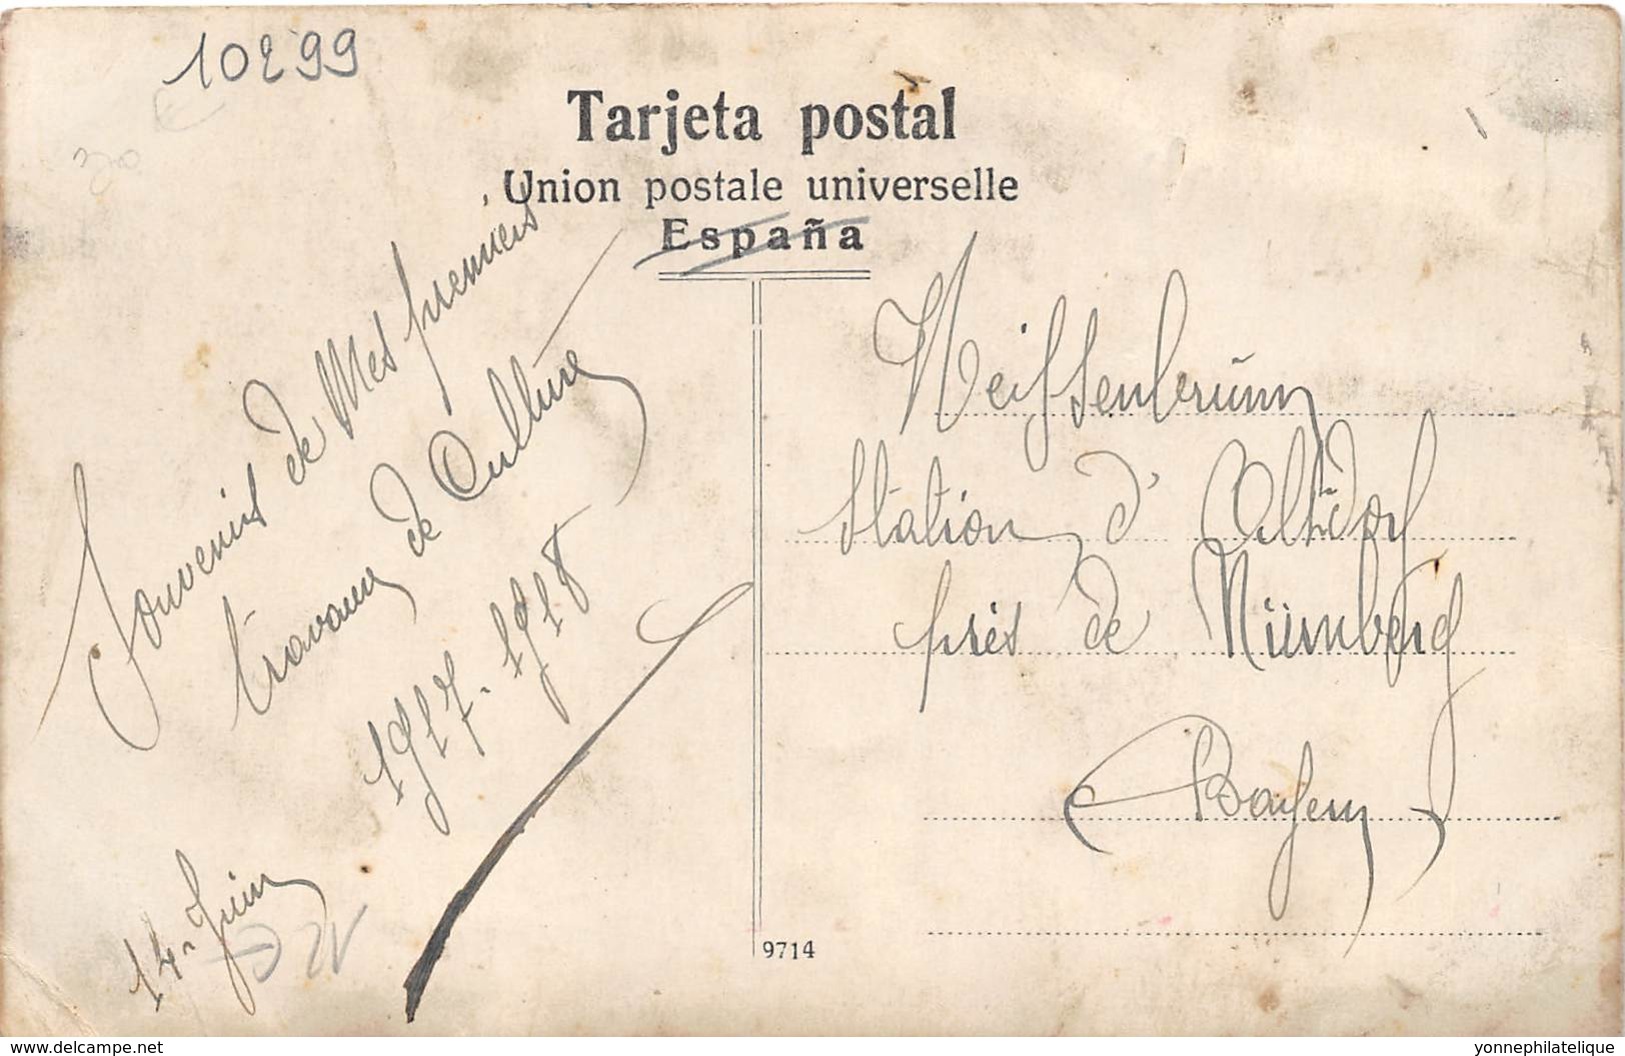 10299
Tarjeta postal
Union postale universelle
España
Souvenirs de Mes premiers
travaux de Culture
1917-1918
14 Juin
Weissenbrunn
Station d' Altdorf
près de Nürnberg
Bayern
9714
www.delcampe.net
yonnephilatelique